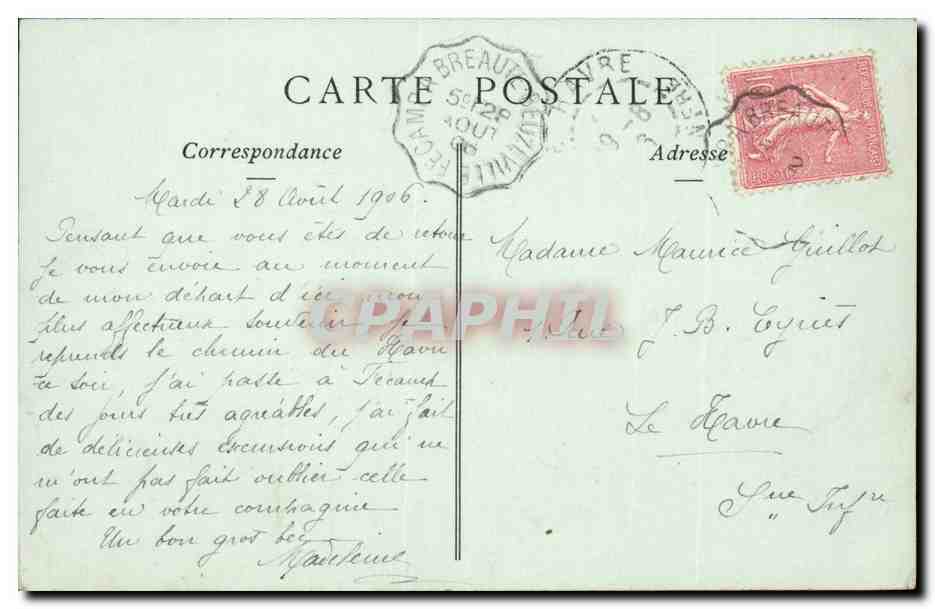 CARTE POSTALE
FECAMP A BREAUTÉ-BEUZEVILLE
5E 12 P
AOUT
06
HAVRE
BREAUTE
Correspondance
Adresse
Mardi 28 Août 1906.
Pensant que vous êtes de retour
Je vous envoie au moment
de mon départ d'ici mon
plus affectueux souvenir Je
reprends le chemin du Havre
ce soir, j'ai passé à Fécamp
des jours très agréables, j'ai fait
de délicieuses excursions qui ne
m'ont pas fait oublier celle
faite en votre compagnie
Un bon gros bec
Madeleine
Madame Maurice Guillot
Rue J. B. Eyriès
Le Havre
Sne Infre
CPAPHIL